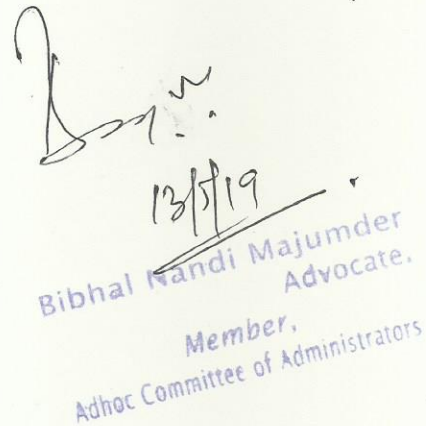 13/5/19
Bibhal Nandi Majumder
Advocate.
Member,
Adhoc Committee of Administrators